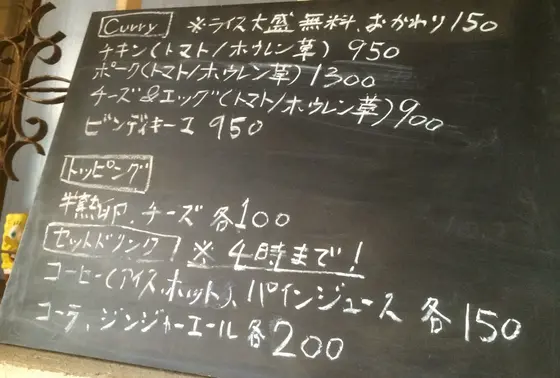 Curry ※ライス大盛無料、おかわり150
チキン(トマト/ホウレン草) 950
ポーク(トマト/ホウレン草) 1300
チーズ&エッグ(トマト/ホウレン草) 900
ビンディキーエ 950
トッピング
半熟卵、チーズ 各100
セットドリンク ※4時まで!
コーヒー(アイス、ホット)、パインジュース 各150
コーラ、ジンジャーエール 各200